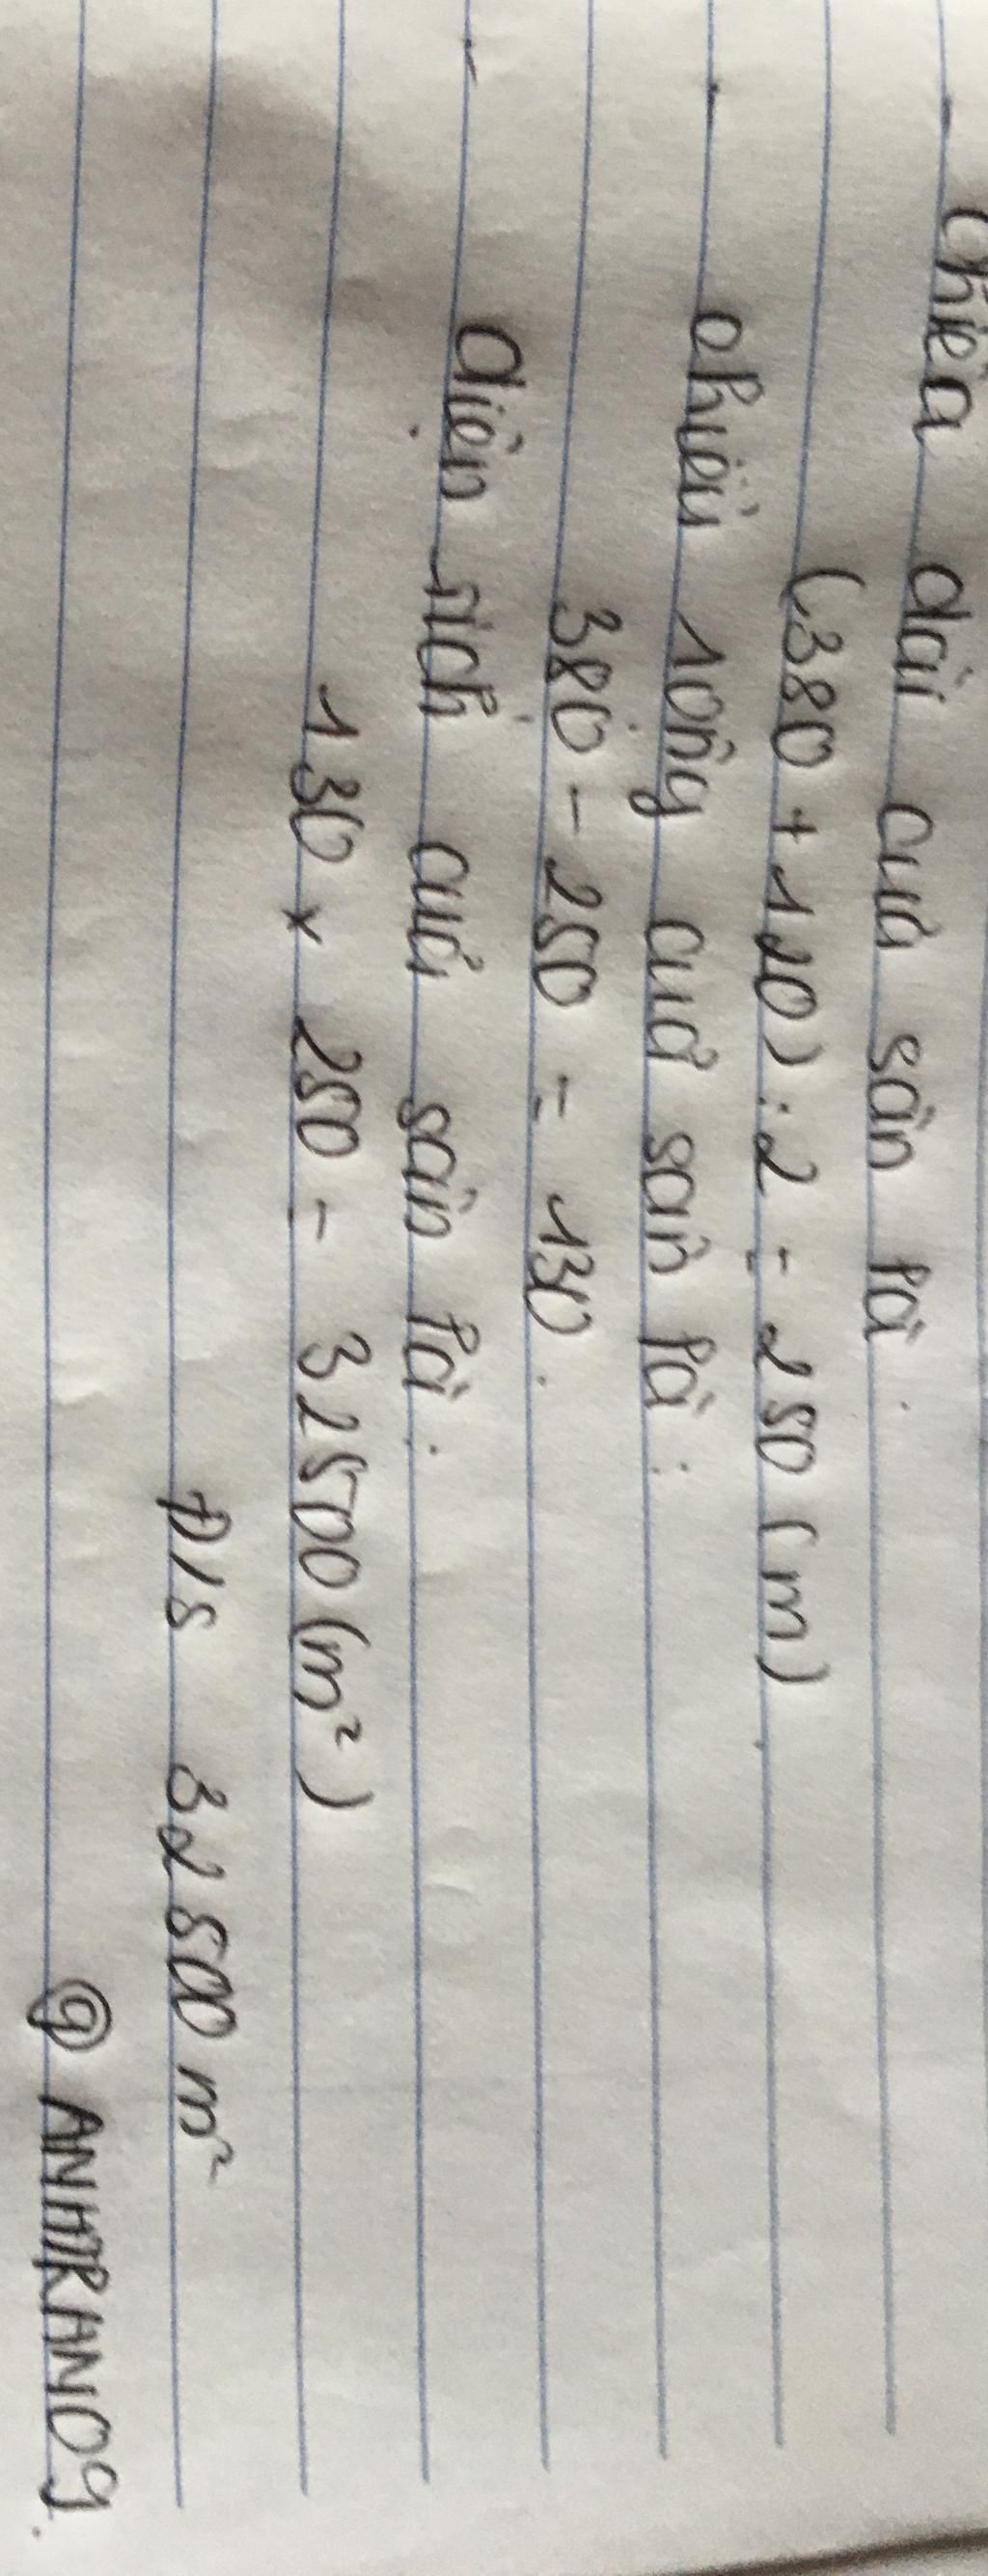 Chiều dài của sân là:
(380 + 120) : 2 = 250 (m)
chiều rộng của sân là:
380 - 250 = 130.
diện tích của sân là:
130 x 250 = 32500 (m²)
Đ/s 32500 m²
@ ANHTRAN09.